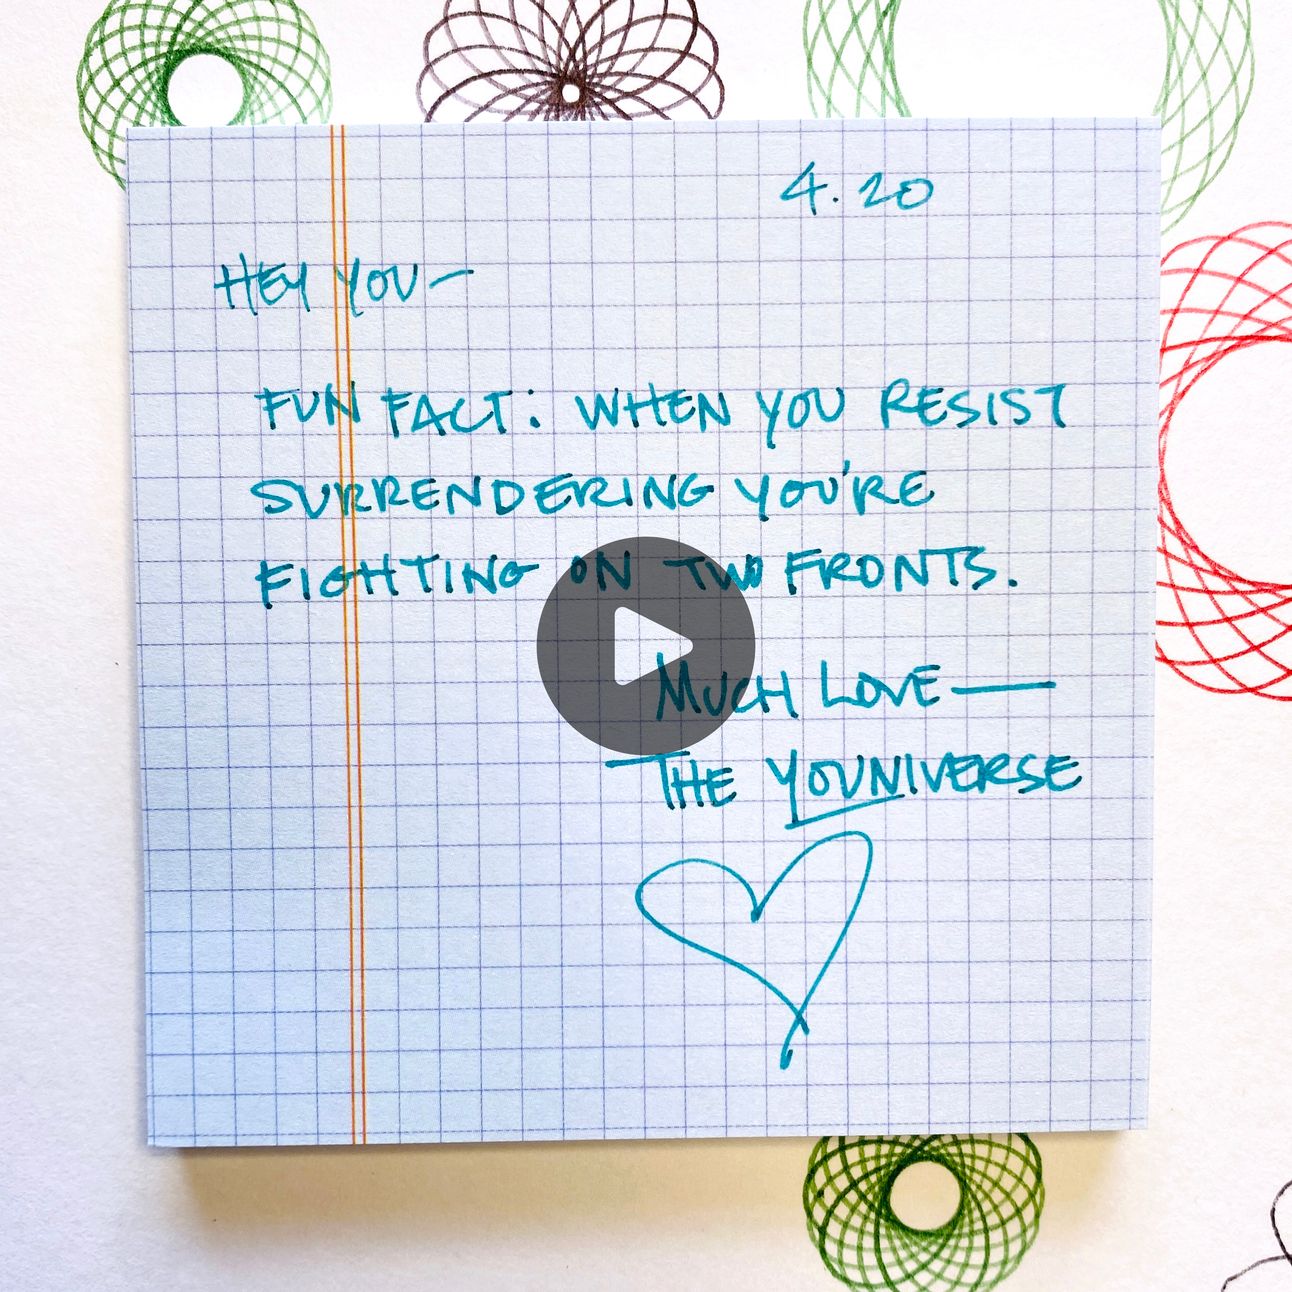 4.20
HEY YOU—
FUN FACT: WHEN YOU RESIST
SURRENDERING YOU'RE
FIGHTING ON TWO FRONTS.
MUCH LOVE—
THE YOUNIVERSE